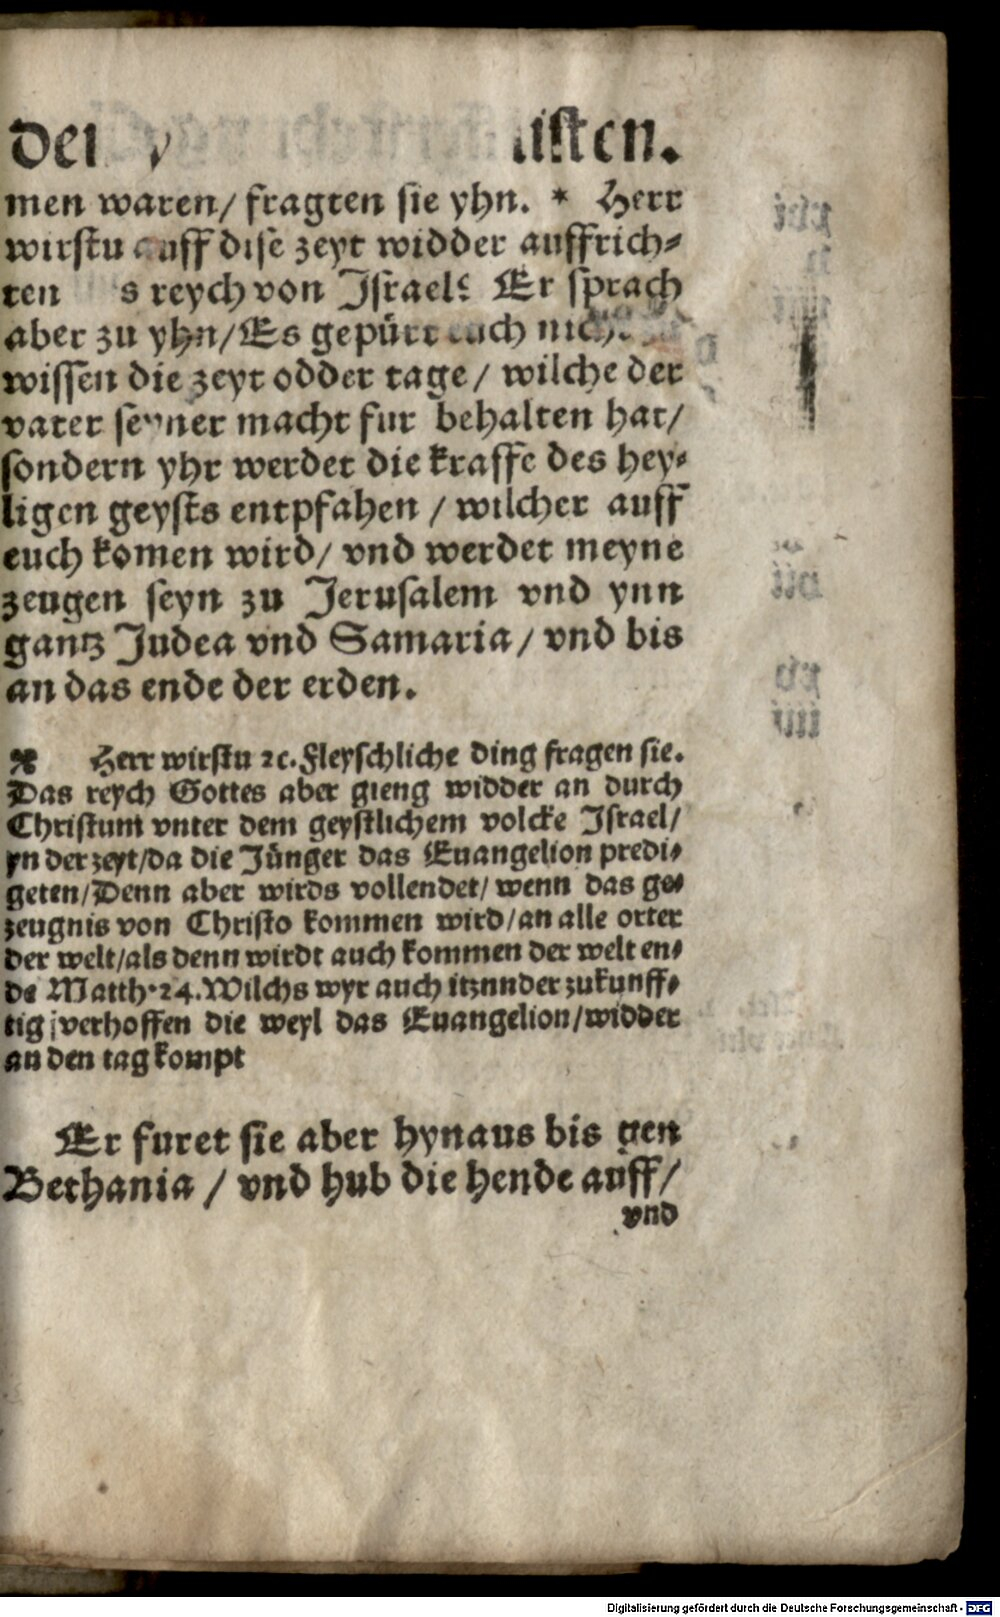 men waren/ fragten sie yhn. * Herr
wirstu auff dise zeyt widder auffrich⸗
ten reych von Israel? Er sprach
aber zu yhn/ Es gepürt euch
wissen die zeyt odder tage/ wilche der
vater seyner macht fur behalten hat/
sondern yhr werdet die krafft des hey⸗
ligen geysts entpfahen/ wilcher auff
euch komen wird/ vnd werdet meyne
zeugen seyn zu Jerusalem vnd ynn
gantz Judea vnd Samaria/ vnd bis
an das ende der erden.
* Herr wirstu ꝛc. Fleyschliche ding fragen sie.
Das reych Gottes aber gieng widder an durch
Christum vnter dem geystlichem volcke Israel/
yn der zeyt/da die Jünger das Euangelion predi⸗
geten/Denn aber wirds vollendet/ wenn das ge⸗
zeugnis von Christo kommen wird/an alle orter
der welt/als denn wirdt auch kommen der welt en⸗
de Matth.24.Wilchs wyr auch itznnder zukunff⸗
tig verhoffen die weyl das Euangelion/widder
an den tag kompt
Er furet sie aber hynaus bis gen
Bethania/ vnd hub die hende auff/
vnd
Digitalisierung gefördert durch die Deutsche Forschungsgemeinschaft - DFG